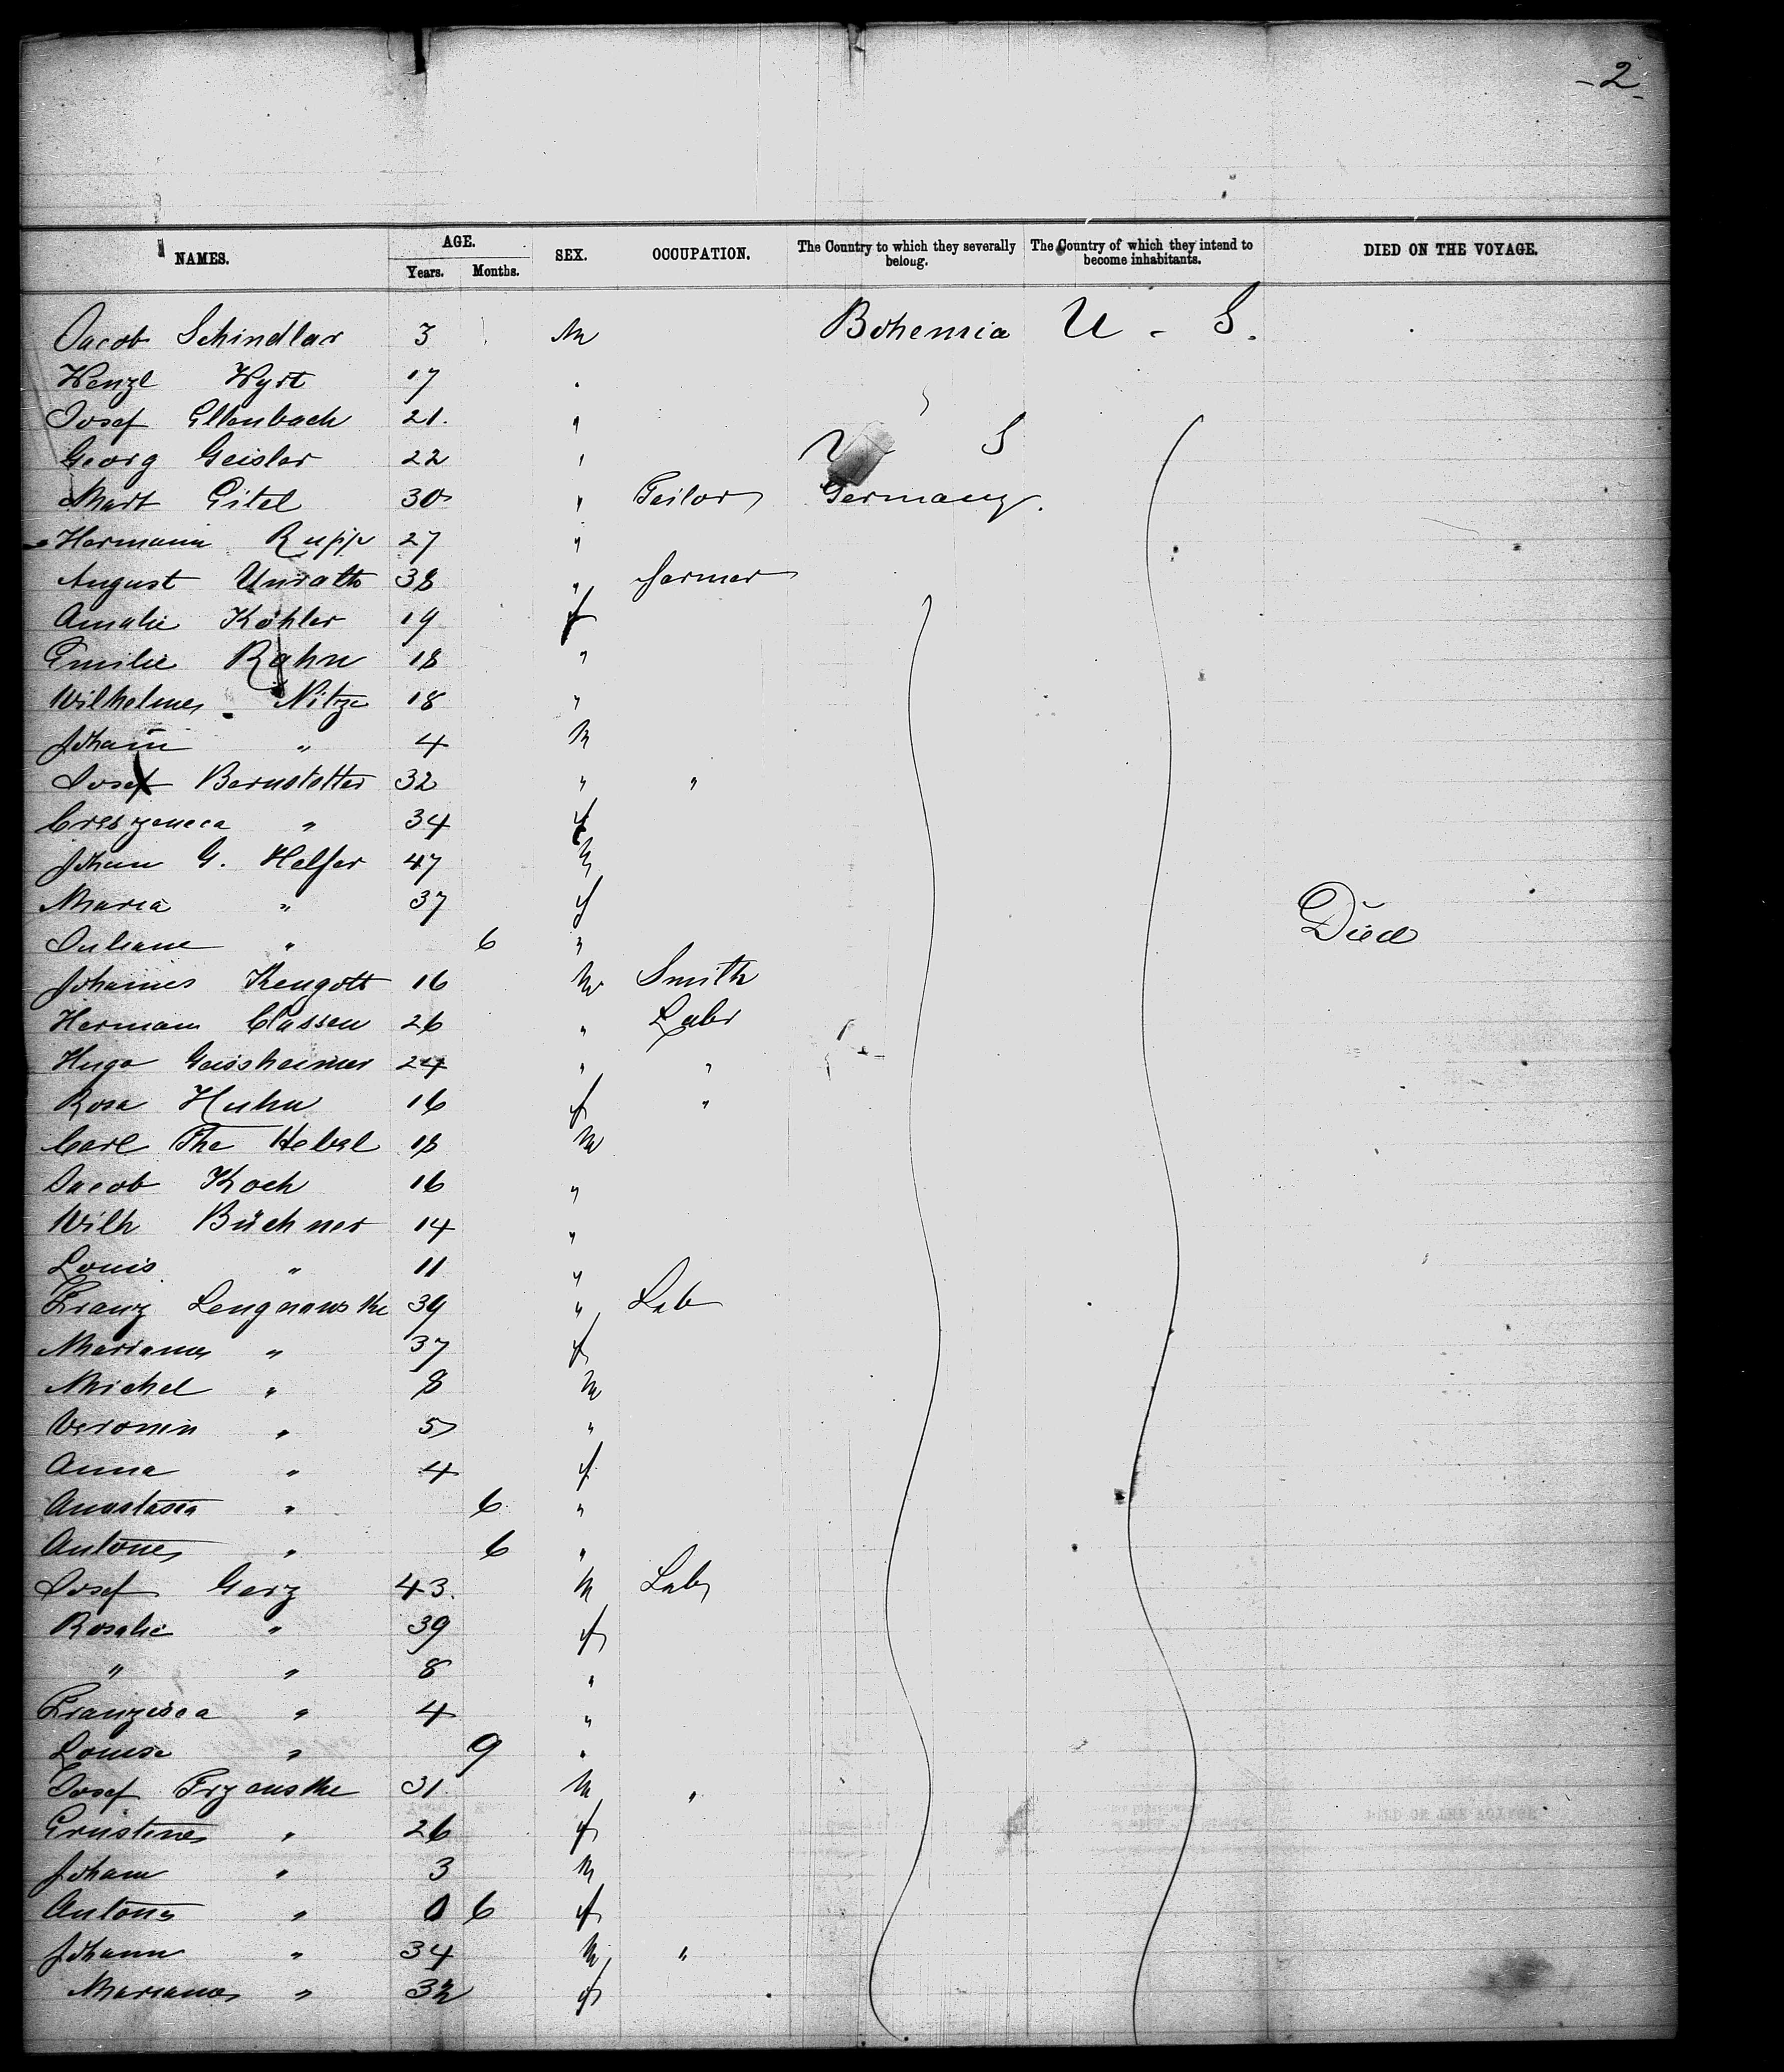 - 2 -
NAMES. AGE. Years. Months. SEX. OCCUPATION. The Country to which they severally belong. The Country of which they intend to become inhabitants. DIED ON THE VOYAGE.
Jacob Schindlar 3 M Bohemia U - S.
Wenzl Wyrt 17 "
Josef Ellenbach 21. "
Georg Geisler 22 " U S
Mart Eitel 30 " Teilor Germany.
Hermann Rupp 27 "
August Unrath 38 " farmer
Amalie Köhler 19 f
Emilie Rahn 18 "
Wilhelmes Nitze 18 "
Joham̄ " 4 M
Josef Bernstetter 32 " "
Creszeneca " 34 f
Johan G. Helfer 47 M
Maria " 37 f
Juliane " 6 " Died
Johannes Kengott 16 M Smith
Hermann Classen 26 " Labr
Hugo Geissheimer 24 " "
Rosa Huhn 16 f "
Carl The Hebel 18 M
Jacob Koch 16 "
Wilh Büchner 14 "
Louis " 11 "
Franz Lengnowske 39 " Lab
Mariana " 37 f
Michel " 8 M
Veronin " 5 "
Anna " 4 f
Anastasia " 6 "
Antones " 6 "
Josef Gerz 43. M Lab
Rosalie " 39 f
" " 8 "
Franzisca " 4 "
Louise " 9 "
Josef Fryanske 31 M "
Grustenes " 26 f
Johann " 3 M
Antons " 0 6 f
Johann " 34 M "
Mariana " 32 f